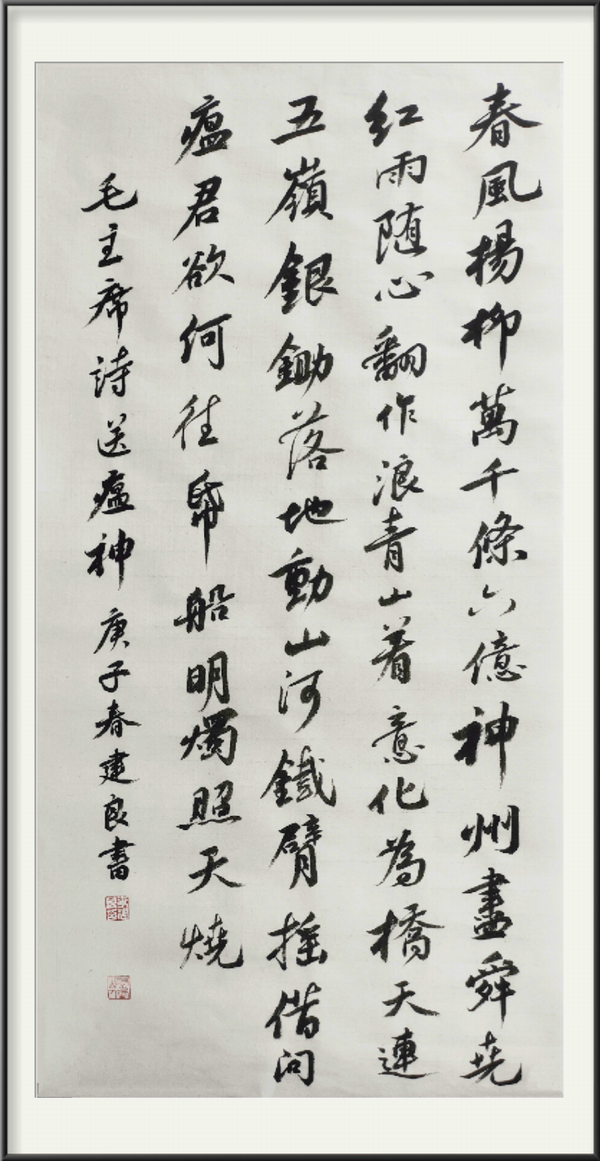 春風楊柳萬千條六億神州盡舜堯
紅雨随心翻作浪青山着意化為橋天連
五嶺銀鋤落地動山河鐵臂摇借问
瘟君欲何往帋船明燭照天燒
毛主席詩送瘟神 庚子春建良書